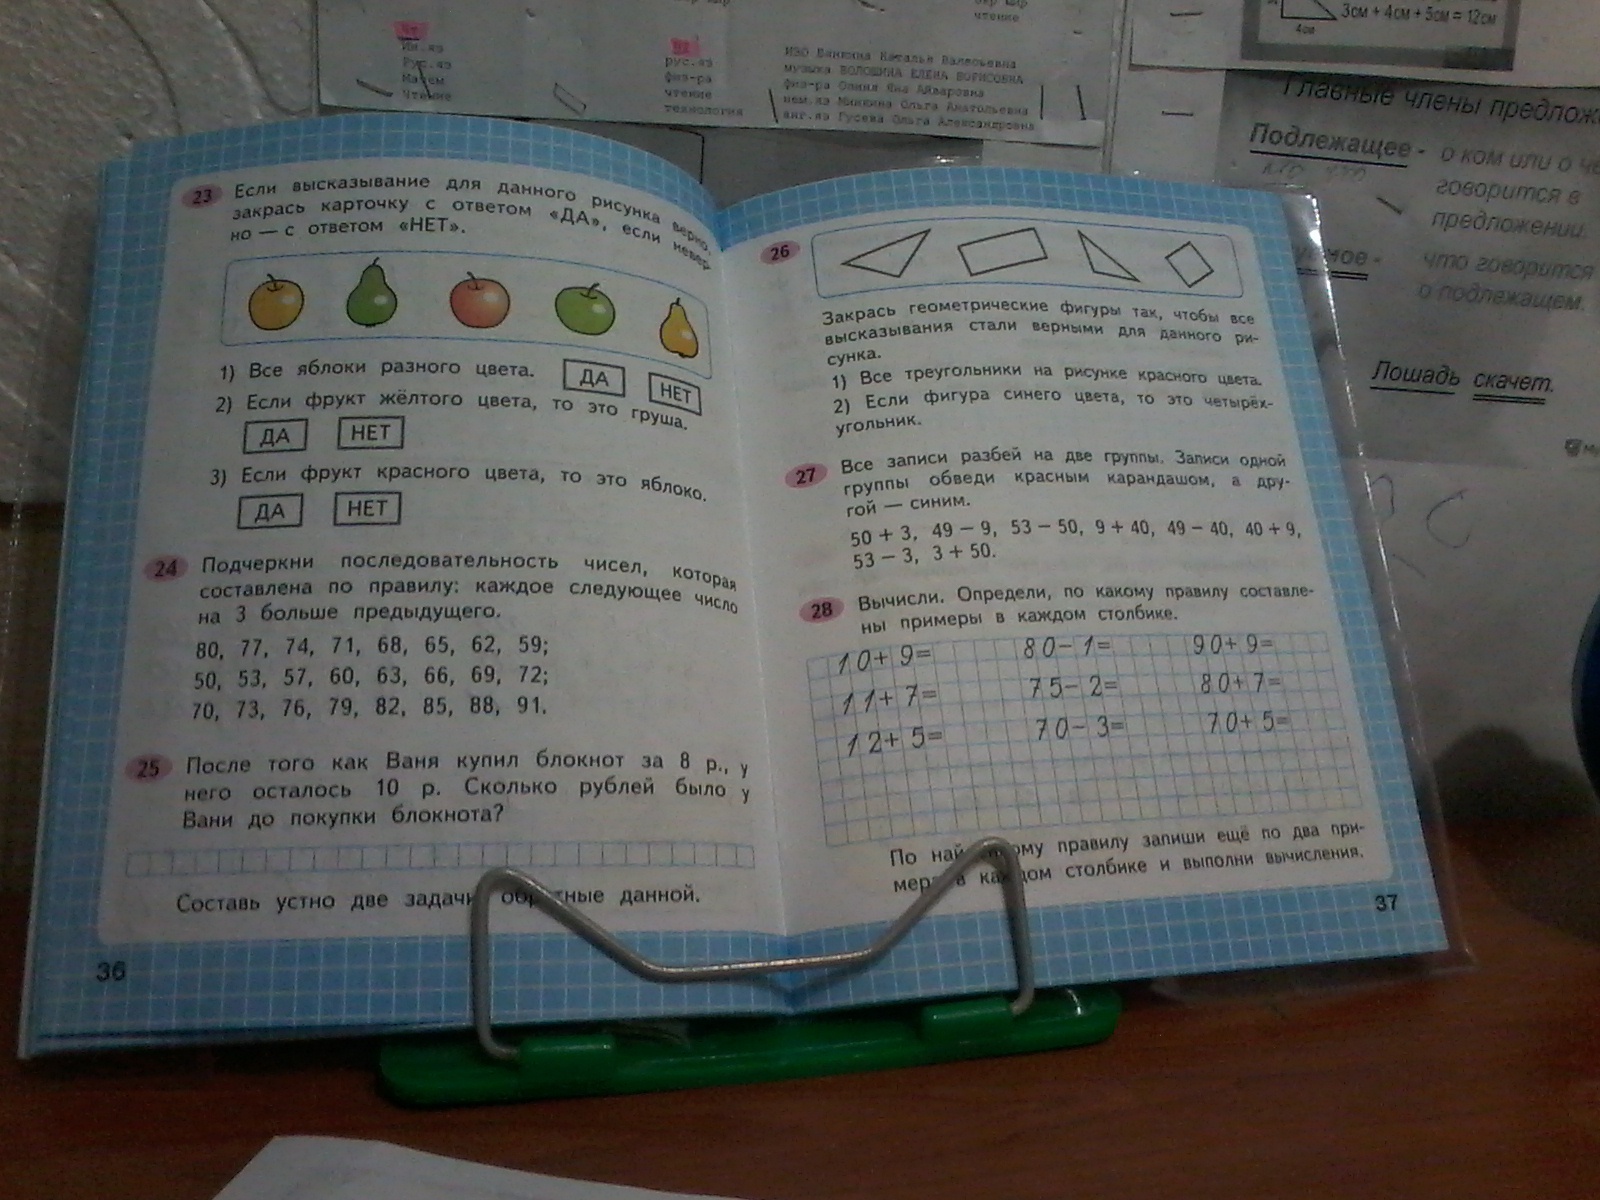 чтение
Ин.яз
Рус.яз
Матем
Чтение
рус.яз
физ-ра
чтение
технология
музыка ВОЛОШИНА ЕЛЕНА БОРИСОВНА
англ.яз Гусева Ольга Александровна
3см + 4см + 5см = 12см
4см
Главные члены предлож
Подлежащее - о ком или о че
говорится в
предложении.
ное - что говорится
о подлежащем.
Лошадь скачет.
23 Если высказывание для данного рисунка верно,
закрась карточку с ответом «ДА», если невер
но — с ответом «НЕТ».
1) Все яблоки разного цвета. ДА НЕТ
2) Если фрукт жёлтого цвета, то это груша.
ДА НЕТ
3) Если фрукт красного цвета, то это яблоко.
ДА НЕТ
24 Подчеркни последовательность чисел, которая
составлена по правилу: каждое следующее число
на 3 больше предыдущего.
80, 77, 74, 71, 68, 65, 62, 59;
50, 53, 57, 60, 63, 66, 69, 72;
70, 73, 76, 79, 82, 85, 88, 91.
25 После того как Ваня купил блокнот за 8 р., у
него осталось 10 р. Сколько рублей было у
Вани до покупки блокнота?
Составь устно две задачи, обратные данной.
36
26
Закрась геометрические фигуры так, чтобы все
высказывания стали верными для данного ри-
сунка.
1) Все треугольники на рисунке красного цвета.
2) Если фигура синего цвета, то это четырёх-
угольник.
27 Все записи разбей на две группы. Записи одной
группы обведи красным карандашом, а дру-
гой — синим.
50 + 3, 49 − 9, 53 − 50, 9 + 40, 49 − 40, 40 + 9,
53 − 3, 3 + 50.
28 Вычисли. Определи, по какому правилу составле-
ны примеры в каждом столбике.
10+ 9= 80− 1= 90+ 9=
11+ 7= 75− 2= 80+ 7=
12+ 5= 70− 3= 70+ 5=
По найденному правилу запиши ещё по два при-
мера в каждом столбике и выполни вычисления.
37